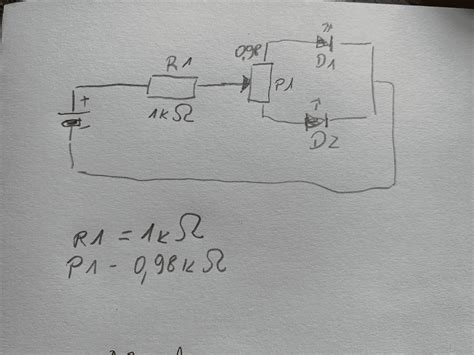 0,98
R1
D1
P1
+
-
1kΩ
D2
R1 = 1kΩ
P1 - 0,98kΩ